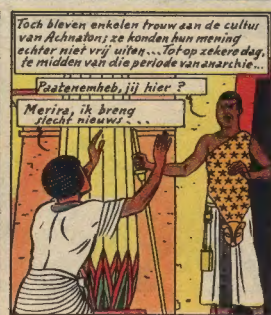 Toch bleven enkelen trouw aan de cultus
van Achnaton; ze konden hun mening
echter niet vrij uiten... Tot op zekere dag,
te midden van die periode van anarchie...
Paatenemheb, jij hier ?
Merira, ik breng
slecht nieuws...